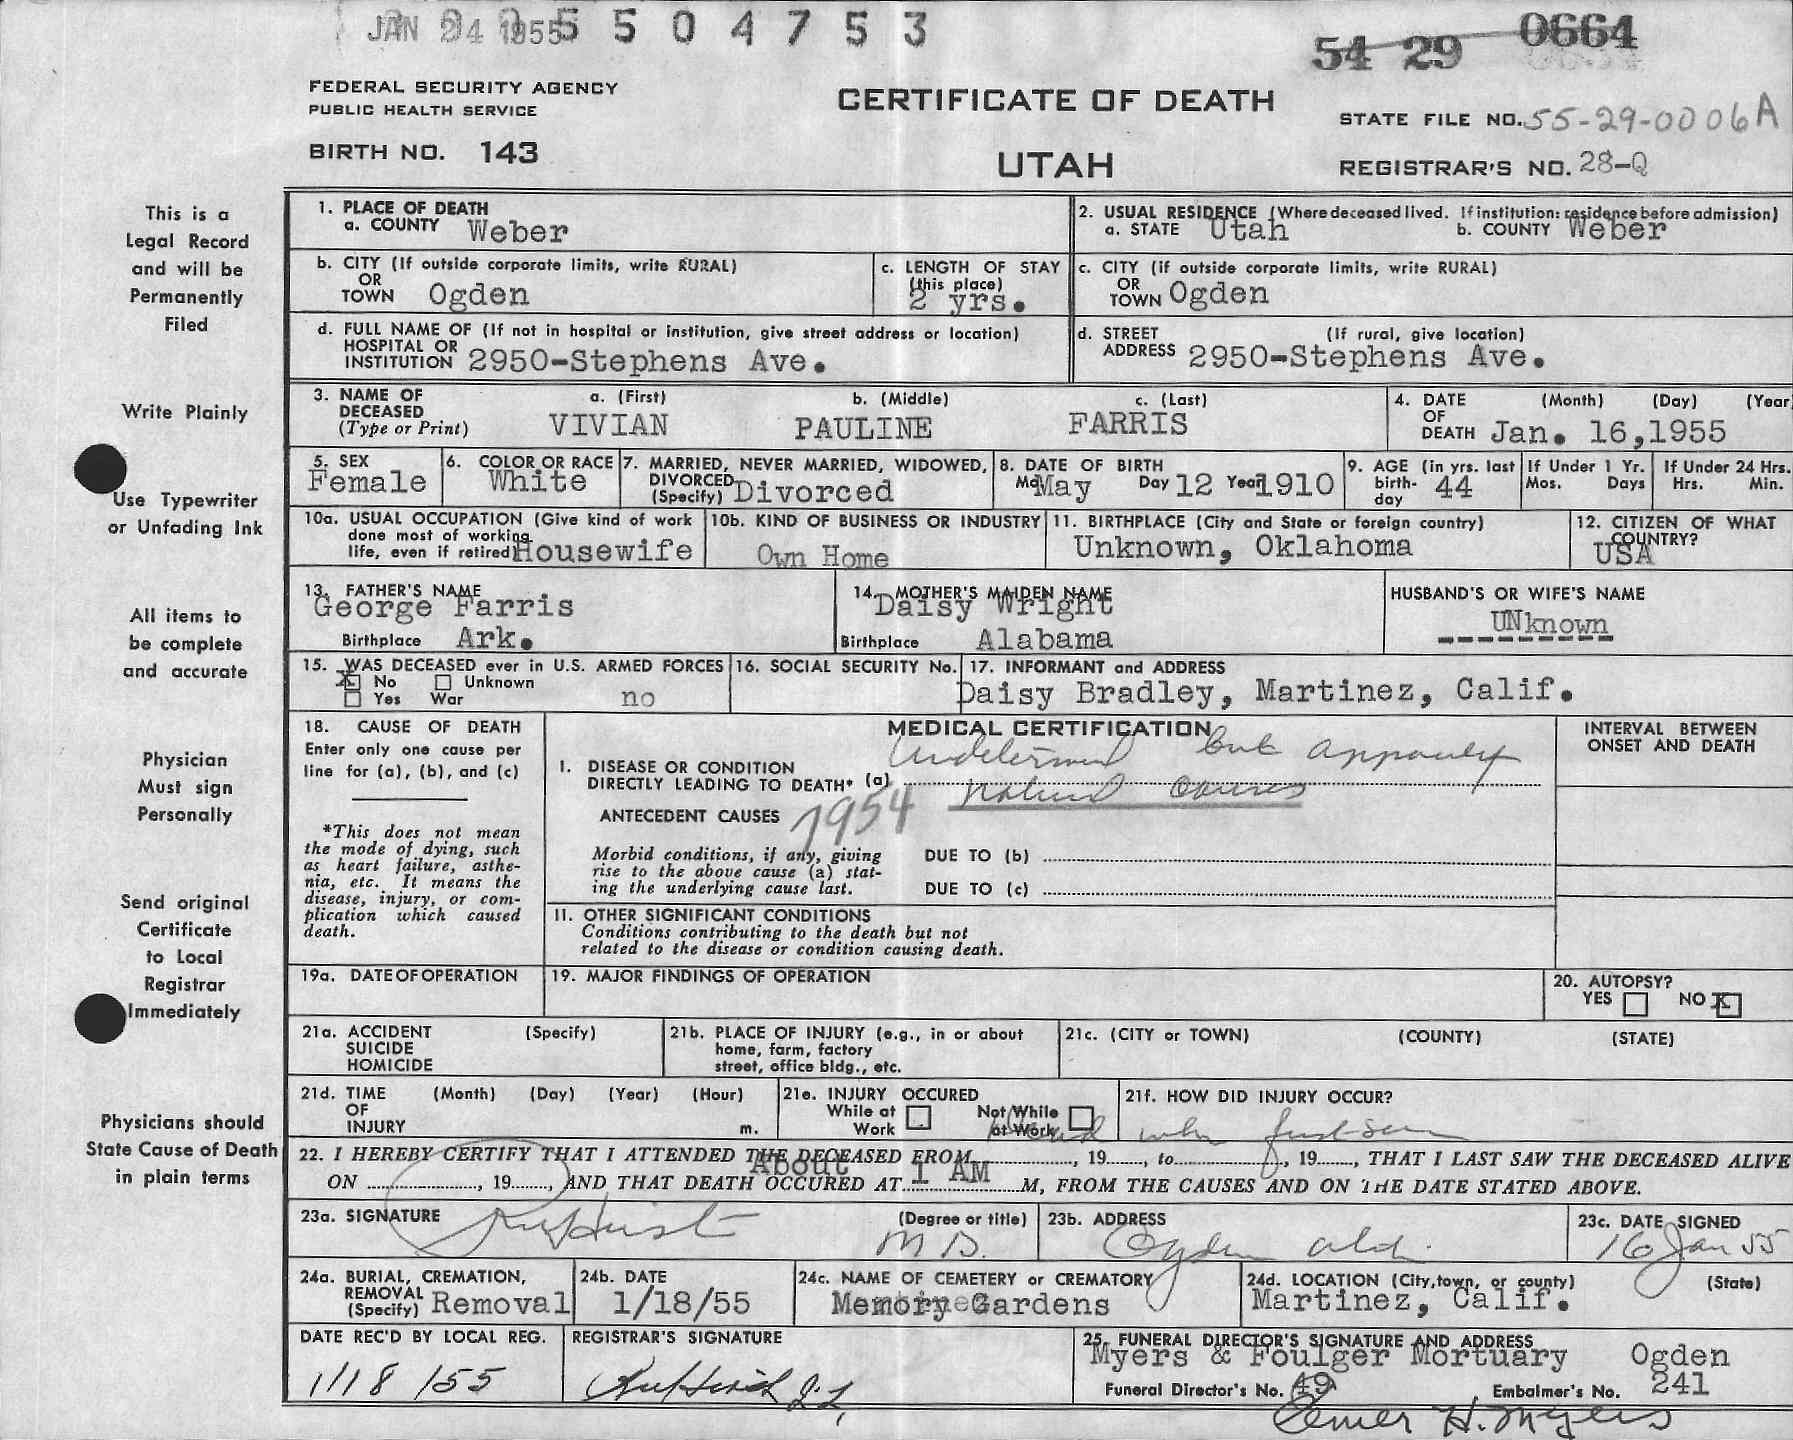 JAN 24 1955 5 5 0 4 7 5 3
54 29 0664
FEDERAL SECURITY AGENCY
PUBLIC HEALTH SERVICE
BIRTH NO. 143
CERTIFICATE OF DEATH
UTAH
STATE FILE NO. 55-29-0006A
REGISTRAR'S NO. 28-Q
This is a
Legal Record
and will be
Permanently
Filed
Write Plainly
Use Typewriter
or Unfading Ink
All items to
be complete
and accurate
Physician
Must sign
Personally
Send original
Certificate
to Local
Registrar
Immediately
Physicians should
State Cause of Death
in plain terms
1. PLACE OF DEATH
a. COUNTY Weber
2. USUAL RESIDENCE (Where deceased lived. If institution: residence before admission)
a. STATE Utah b. COUNTY Weber
b. CITY (If outside corporate limits, write RURAL)
OR
TOWN Ogden
c. LENGTH OF STAY
(this place)
2 yrs.
c. CITY (if outside corporate limits, write RURAL)
OR
TOWN Ogden
d. FULL NAME OF (If not in hospital or institution, give street address or location)
HOSPITAL OR
INSTITUTION 2950-Stephens Ave.
d. STREET (If rural, give location)
ADDRESS 2950-Stephens Ave.
3. NAME OF a. (First) b. (Middle) c. (Last)
DECEASED
(Type or Print) VIVIAN PAULINE FARRIS
4. DATE (Month) (Day) (Year
OF
DEATH Jan. 16,1955
5. SEX
Female
6. COLOR OR RACE
White
7. MARRIED, NEVER MARRIED, WIDOWED,
DIVORCED
(Specify) Divorced
8. DATE OF BIRTH
Mo May Day 12 Year 1910
9. AGE (in yrs. last
birth-
day 44
If Under 1 Yr.
Mos. Days
If Under 24 Hrs.
Hrs. Min.
10a. USUAL OCCUPATION (Give kind of work
done most of working
life, even if retired) Housewife
10b. KIND OF BUSINESS OR INDUSTRY
Own Home
11. BIRTHPLACE (City and State or foreign country)
Unknown, Oklahoma
12. CITIZEN OF WHAT
COUNTRY?
USA
13. FATHER'S NAME
George Farris
Birthplace Ark.
14. MOTHER'S MAIDEN NAME
Daisy Wright
Birthplace Alabama
HUSBAND'S OR WIFE'S NAME
UNknown
15. WAS DECEASED ever in U.S. ARMED FORCES
X No Unknown
Yes War no
16. SOCIAL SECURITY No.
17. INFORMANT and ADDRESS
Daisy Bradley, Martinez, Calif.
18. CAUSE OF DEATH
Enter only one cause per
line for (a), (b), and (c)
*This does not mean
the mode of dying, such
as heart failure, asthe-
nia, etc. It means the
disease, injury, or com-
plication which caused
death.
MEDICAL CERTIFICATION
Undetermined but apparently
I. DISEASE OR CONDITION
DIRECTLY LEADING TO DEATH* (a) natural causes
ANTECEDENT CAUSES 7954
Morbid conditions, if any, giving
rise to the above cause (a) stat-
ing the underlying cause last.
DUE TO (b)
DUE TO (c)
II. OTHER SIGNIFICANT CONDITIONS
Conditions contributing to the death but not
related to the disease or condition causing death.
INTERVAL BETWEEN
ONSET AND DEATH
19a. DATE OF OPERATION
19. MAJOR FINDINGS OF OPERATION
20. AUTOPSY?
YES NO X
21a. ACCIDENT (Specify)
SUICIDE
HOMICIDE
21b. PLACE OF INJURY (e.g., in or about
home, farm, factory
street, office bldg., etc.
21c. (CITY or TOWN) (COUNTY) (STATE)
21d. TIME (Month) (Day) (Year) (Hour)
OF
INJURY m.
21e. INJURY OCCURED
While at Work Not While at Work
21f. HOW DID INJURY OCCUR?
when first seen
22. I HEREBY CERTIFY THAT I ATTENDED THE DECEASED FROM, 19, to, 19, THAT I LAST SAW THE DECEASED ALIVE
ON, 19, AND THAT DEATH OCCURED AT About 1 AM M, FROM THE CAUSES AND ON THE DATE STATED ABOVE.
23a. SIGNATURE (Degree or title)
M D.
23b. ADDRESS
Ogden Utah.
23c. DATE SIGNED
16 Jan 55
24a. BURIAL, CREMATION,
REMOVAL
(Specify) Removal
24b. DATE
1/18/55
24c. NAME OF CEMETERY or CREMATORY
Memory Gardens
24d. LOCATION (City, town, or county) (State)
Martinez, Calif.
DATE REC'D BY LOCAL REG.
1/18/55
REGISTRAR'S SIGNATURE
25. FUNERAL DIRECTOR'S SIGNATURE AND ADDRESS
Myers & Foulger Mortuary Ogden
Funeral Director's No. 49 Embalmer's No. 241
Elmer H. Myers